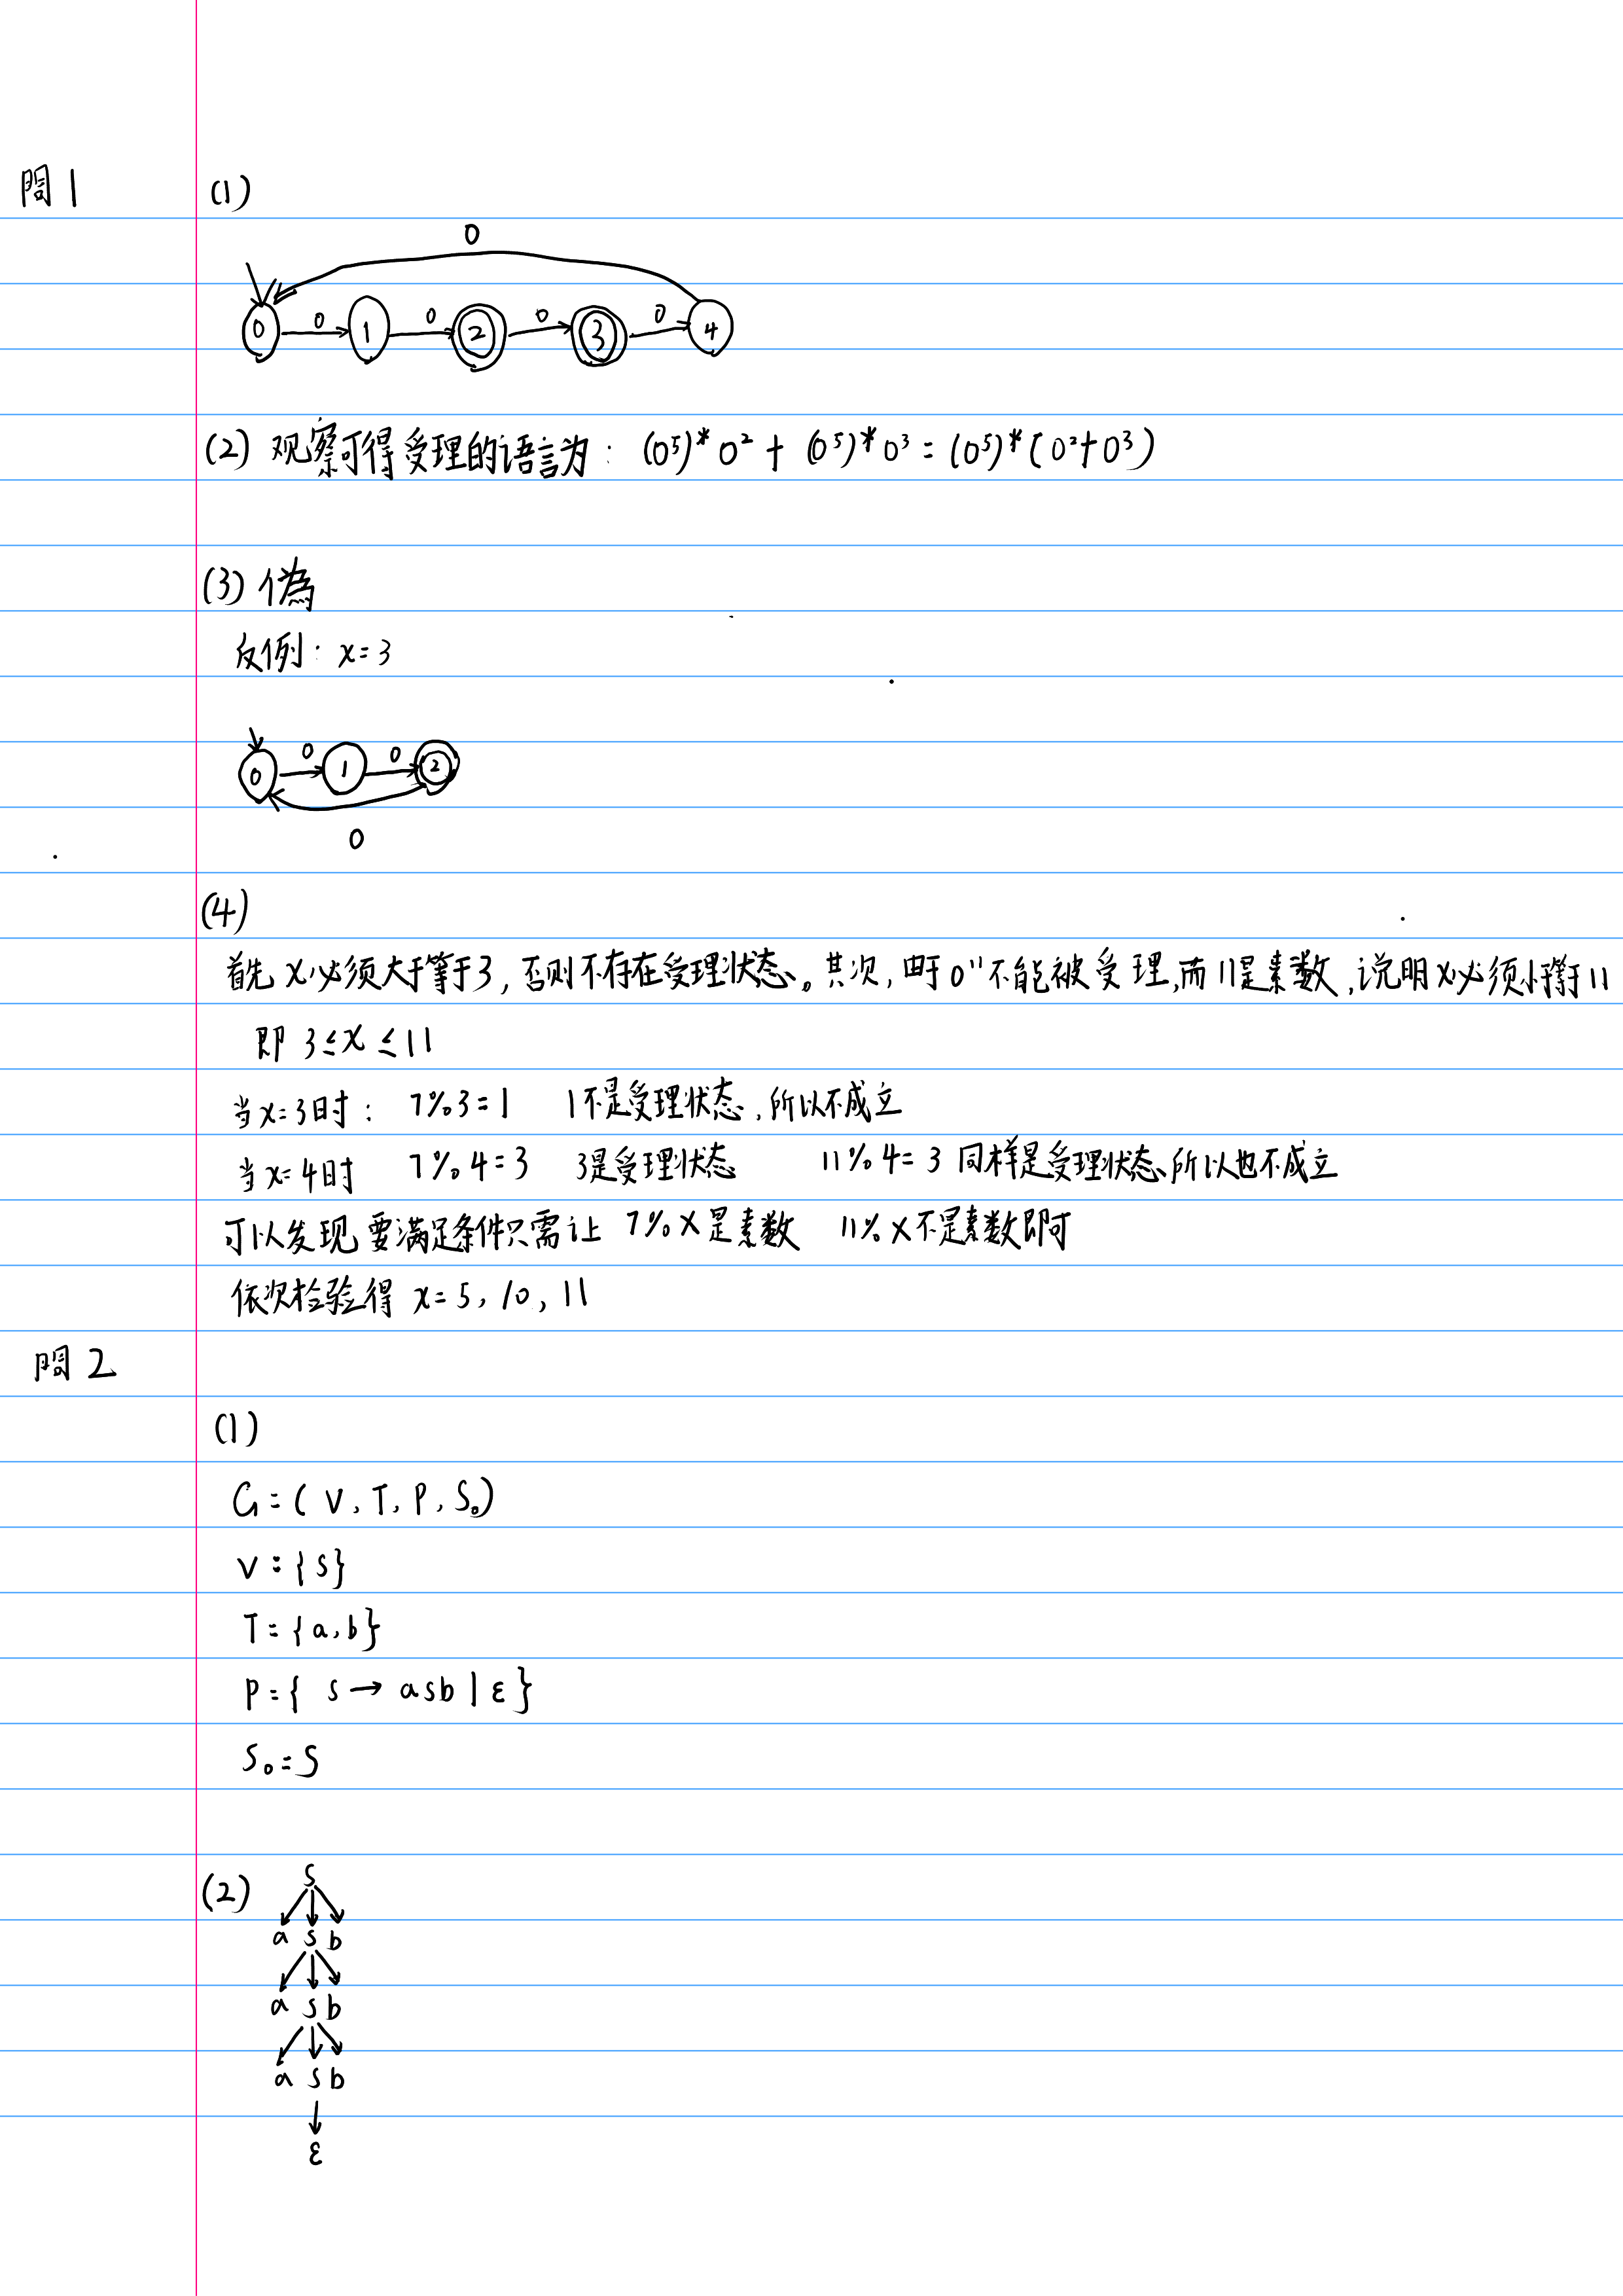 問1
(1)
0
0 0 1 0 2 0 3 0 4
(2) 观察可得受理的语言为: (0⁵)*0² + (0⁵)*0³ = (0⁵)*(0²+0³)
(3) 偽
反例: x=3
0 0 1 0 2
0
(4)
首先 x必须大于等于3, 否则不存在受理状态。其次, 由于0¹¹不能被受理,而11是素数,说明x必须小于等于11
即 3≤x≤11
当x=3时: 7%3=1 1不是受理状态,所以不成立
当x=4时 7%4=3 3是受理状态 11%4=3 同样是受理状态、所以也不成立
可以发现要满足条件只需让 7%x是素数 11%x不是素数即可
依次检验得 x=5, 10, 11
問2
(1)
G=(V, T, P, S₀)
V={S}
T={a,b}
P={ S → aSb | ε }
S₀=S
(2) S
a S b
a S b
a S b
ε